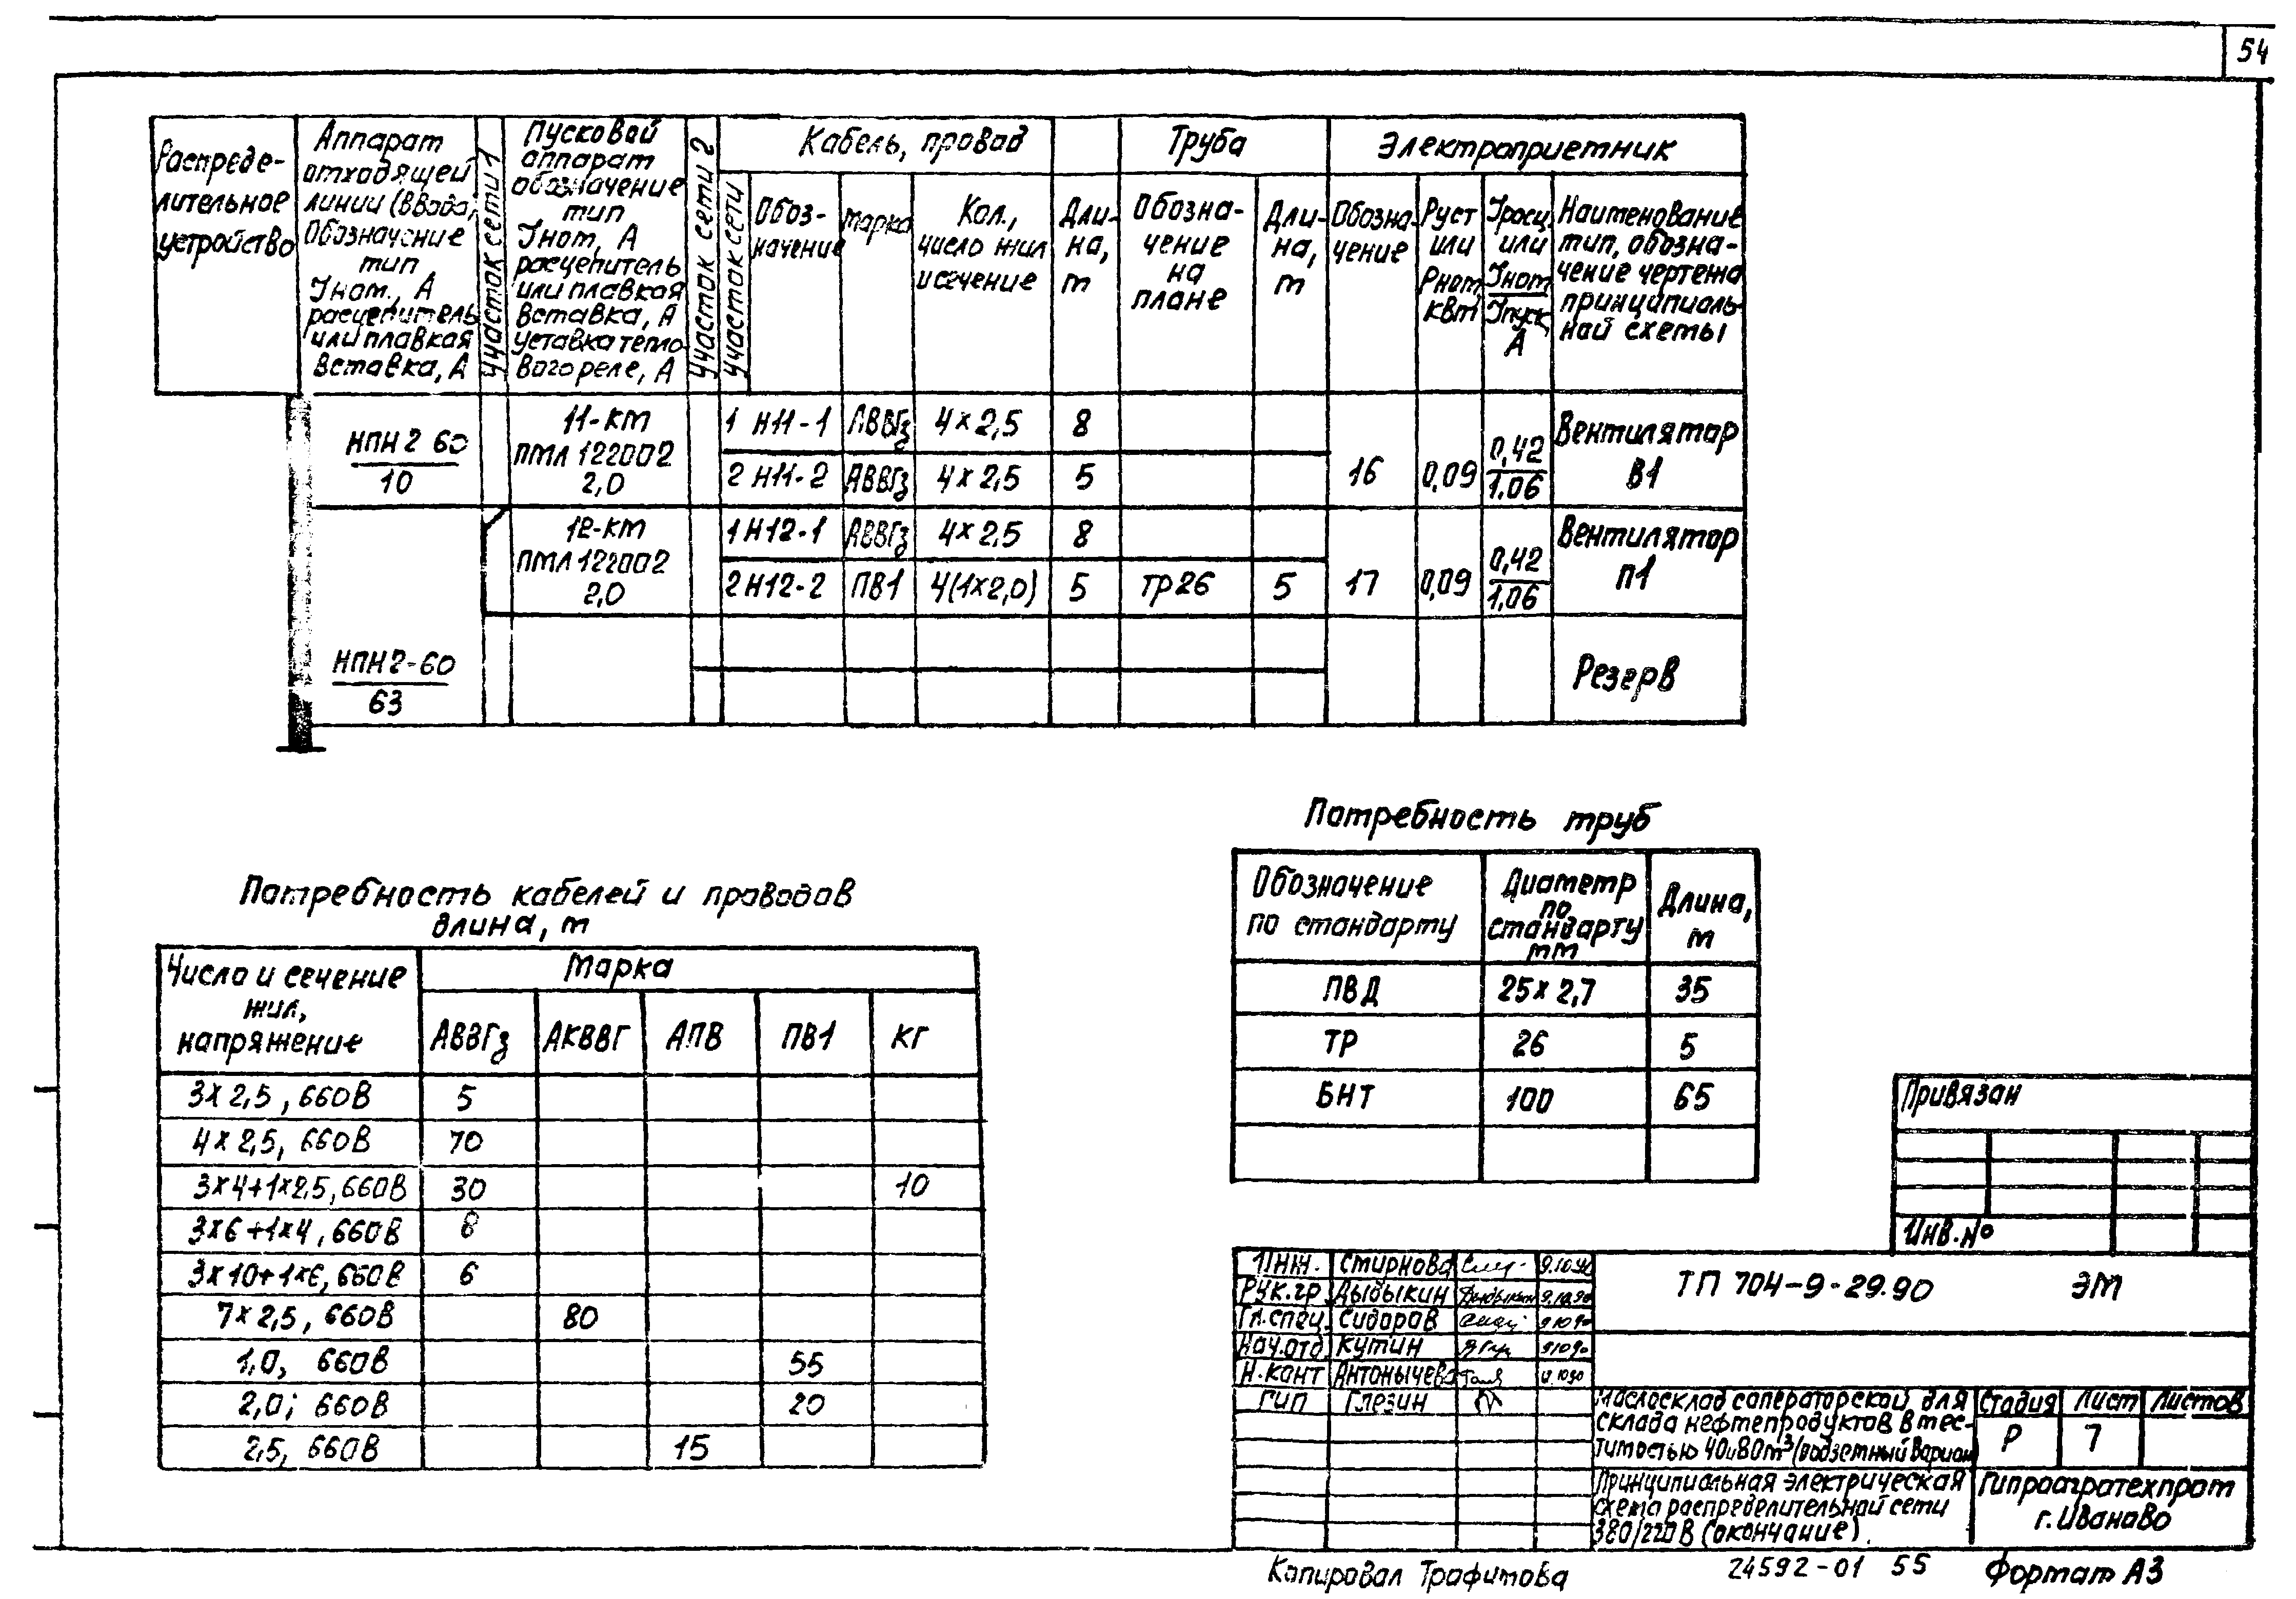 54
Распреде-
лительное
устройство
Аппарат
отходящей
линии (ввода)
Обозначение
тип
Iном., А
расцепитель
или плавкая
вставка, А
Участок сети 1
Пусковой
аппарат
обозначение
тип
Iном, А
расцепитель
или плавкая
вставка, А
уставка тепло-
вого реле, А
Участок сети 2
Кабель, провод
Участок сети
Обоз-
начение
Марка
Кол.,
число жил
и сечение
Дли-
на,
м
Труба
Обозна-
чение
на
плане
Дли-
на,
м
Электроприемник
Обозна-
чение
Руст
или
Рном
кВт
Iрасц.
или
Iном
Iпуск
А
Наименование
тип, обозна-
чение чертежа
принципиаль-
ной схемы
НПН2 60
10
11-КМ
ПМЛ 122002
2,0
1 Н11-1 АВВГз 4×2,5 8
2 Н11-2 АВВГз 4×2,5 5
16 0,09 0,42
1,06
Вентилятор
В1
12-КМ
ПМЛ 122002
2,0
1 Н12-1 АВВГз 4×2,5 8
2 Н12-2 ПВ1 4(1×2,0) 5 ТР26 5
17 0,09 0,42
1,06
Вентилятор
П1
НПН2-60
63
Резерв
Потребность кабелей и проводов
длина, м
Число и сечение
жил,
напряжение
Марка
АВВГз АКВВГ АПВ ПВ1 КГ
3×2,5, 660В 5
4×2,5, 660В 70
3×4+1×2,5, 660В 30 10
3×6+1×4, 660В 8
3×10+1×6, 660В 6
7×2,5, 660В 80
1,0, 660В 55
2,0; 660В 20
2,5, 660В 15
Потребность труб
Обозначение
по стандарту
Диаметр
по
стандарту
мм
Длина,
м
ПВД 25×2,7 35
ТР 26 5
БНТ 100 65
Привязан
Инв.№
Инж. Смирнова 9.10.90
Рук.гр. Дыдыкин 9.10.90
Гл.спец. Сидоров 9.10.90
Нач.отд. Кутин 9.10.90
Н.конт Антонычева
ГИП Глезин
ТП 704-9-29.90 ЭМ
Маслосклад с операторской для
склада нефтепродуктов вмес-
тимостью 40и80м³ (подземный вариан
Стадия Лист Листов
Р 7
Принципиальная электрическая
схема распределительной сети
380/220В (окончание).
Гипроагротехпром
г.Иваново
Копировал Трафимова
24592-01 55
Формат А3